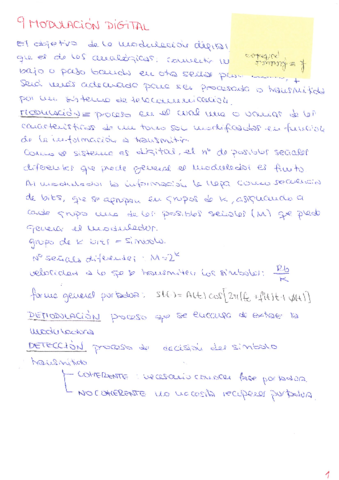 9 MODULACIÓN DIGITAL
El objetivo de la modulación digital
que es de las analógicas. Convertir un
bajo o paso banda en otra señal
será más adecuada para ser procesada o transmitida
por un sistema de telecomunicación.
MODULACIÓN es proceso en el cual una o varias de las
características de un tono son modificadas en función
de la información a transmitir
Como el sistema es digital, el nº de posibles señales
diferentes que puede generar el modulador es finito
Al modulador la información la llega como secuencia
de bits, que se agrupan en grupos de k, asignando a
cada grupo una de las posibles señales (M) que puede
generar el modulador.
grupo de k bits = Símbolo
Nº señales diferentes: M=2^k
velocidad a la que se transmiten los símbolos: Rb/k
forma general portadora: s(t)= A(t) cos[2π(fc + f(t))t + φ(t)]
DEMODULACIÓN proceso que se encarga de extraer la
moduladora
DETECCIÓN proceso de decisión del símbolo
transmitido
COHERENTE: necesario conocer fase portadora
NO COHERENTE no necesita recuperar portadora
1